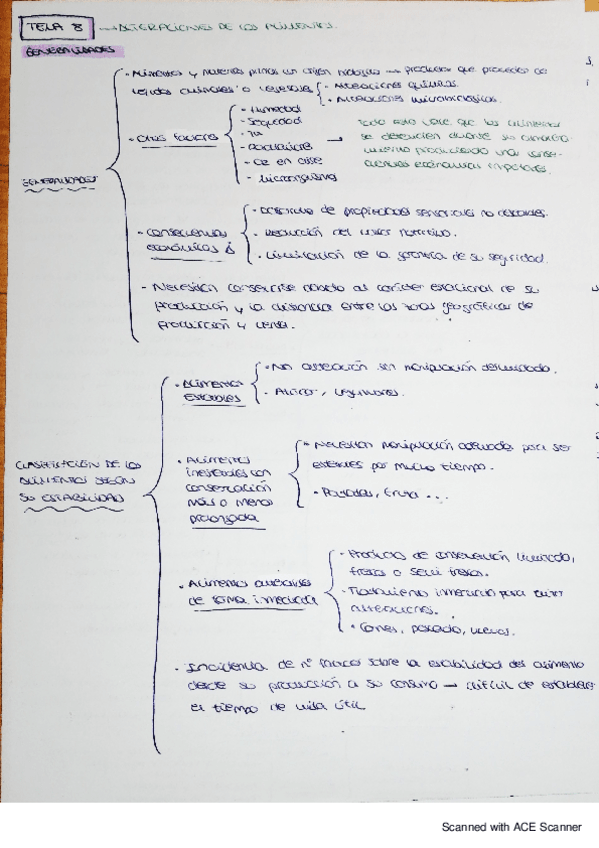 TEMA 8 → ALTERACIONES DE LOS ALIMENTOS.
GENERALIDADES
GENERALIDADES
- Alimentos y materias primas un origen biológico → productos que proceden de
tejidos animales o vegetales
- Alteraciones químicas.
- Alteraciones microbiológicas.
- Otros factores
- Humedad
- Sequedad
- Luz
- Oxígeno
- Microorganismos
→ todo esto hace que los alimentos
se deterioren durante su
produciendo una conse-
cuencias económicas importantes.
- Consecuencias
económicas
- Desarrollo de propiedades sensoriales no deseables.
- Reducción del valor nutritivo.
- Limitación de la garantía de su seguridad.
- Necesitan conservarse debido al carácter estacional de su
producción y la distancia entre las zonas geográficas de
producción y venta.
CLASIFICACIÓN DE LOS
ALIMENTOS SEGÚN
SU ESTABILIDAD
- Alimentos
Estables
- No alteración sin manipulación descuidada.
- Azúcar, legumbres.
- Alimentos
inestables con
conservación
más o menos
prolongada
- Necesitan manipulación adecuada para ser
estables por mucho tiempo.
- Patatas, fruta...
- Alimentos alterables
de forma inmediata
- Productos de conservación limitada,
frescos o semi frescos.
- Tratamiento inmediato para evitar
alteraciones.
- Carnes, pescado, huevos.
- Incidencia de nº factores sobre la estabilidad del alimento
desde su producción a su consumo → difícil de establecer
el tiempo de vida útil
Scanned with ACE Scanner